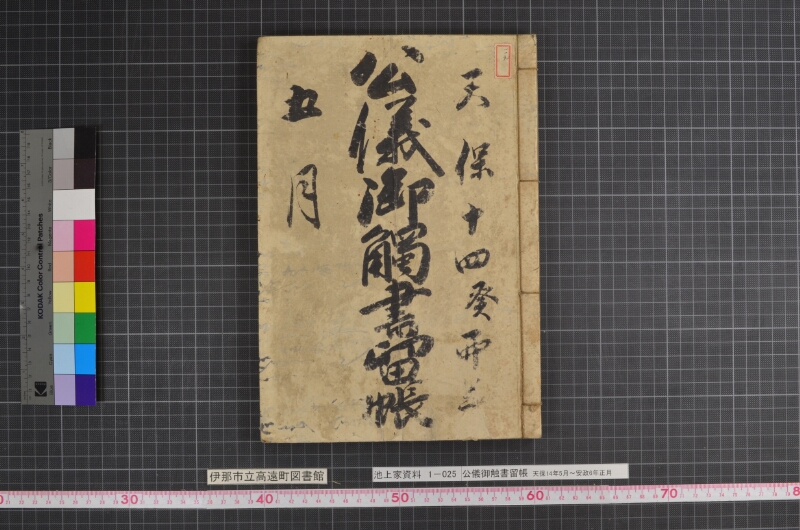 天保十四癸卯年
公儀御觸書留帳
五月
KODAK Color Control Patches
伊那市立高遠町図書館
池上家資料 1－025 公儀御触書留帳 天保14年5月～安政6年正月
30 40 50 60 70 8